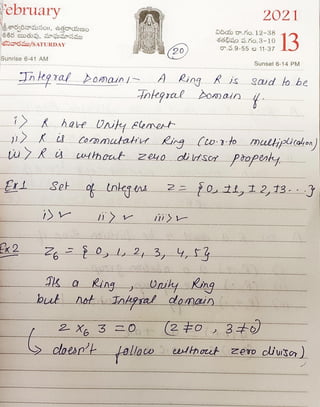 February
2021
శ్రీ శార్వరినామసం॥, ఉత్తరాయణం
శిశిర ఋతువు, మాఘమాసం
శనివారము/SATURDAY
విదియ రా.గం.12-38
శతభిషం ప.గం.3-10
రా.వ.9-55 ల 11-37
13
Sunrise 6-41 AM
Sunset 6-14 PM
20
Integral Domain:- A Ring R is said to be
Integral Domain if.
i> R have Unity Element
ii> R is commutative Ring (w.r.to multiplication)
iii> R is without zero divisor property
Ex1 Set of Integers Z = {0, ±1, ±2, ±3...}
i>✓ ii>✓ iii>✓
Ex2 Z6 = {0, 1, 2, 3, 4, 5}
Its a Ring, Unity Ring
but not Integral domain
2 x6 3 = 0 (2≠0, 3≠0)
doesn't follow without zero divisor)